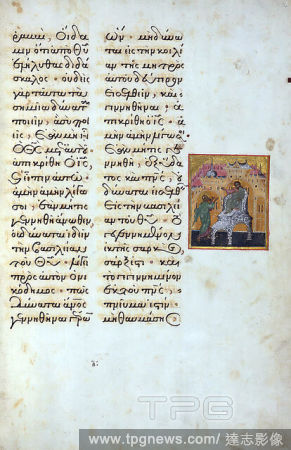 ραββί, οἴδα
μεν ὅτι ἀπὸ θυ
ἐλήλυθας διδά
σκαλος· οὐδεὶς
γὰρ ταῦτα τὰ
σημεῖα δύναται
ποιεῖν, ἃ σὺ ποι
εῖς, ἐὰν μὴ ἦ ὁ
θς μετ' αὐτοῦ
ἀπεκρίθη ὁ ις,
εἶπεν αὐτῶ·
ἀμὴν ἀμὴν λέγω
σοι· ἐὰν μή τις
γεννηθῆ ἄνωθεν,
οὐ δύναται ἰδεῖν
τὴν βασιλείαν
τοῦ θυ· λέγει
πρὸς αὐτὸν ὁ νι
κόδημος· πῶς
δύναται ἄνος
γεννηθῆναι γέρω
ὤν· μὴ δύνα
ται εἰς τὴν κοιλί
αν τῆς μητρὸς
αὐτοῦ δεύτερον
εἰσελθεῖν, καὶ
γεννηθῆναι· ἀ
πεκρίθη ὁ ις· ἀ
μὴν ἀμὴν λέγω σοι
ἐὰν μή τις
γεννηθῆ ἐξ ὕδα
τος καὶ πνς, οὐ
δύναται εἰσελθεῖν
εἰς τὴν βασιλεί
αν τοῦ θυ· τὸ
γεγεννημένον
ἐκ τῆς σαρκὸς
σάρξ ἐστι· καὶ
τὸ γεγεννημένον
ἐκ τοῦ πνς,
πνευμά ἐστιν·
μὴ θαυμάσης
TPG
www.tpgnews.com/ 達志影像